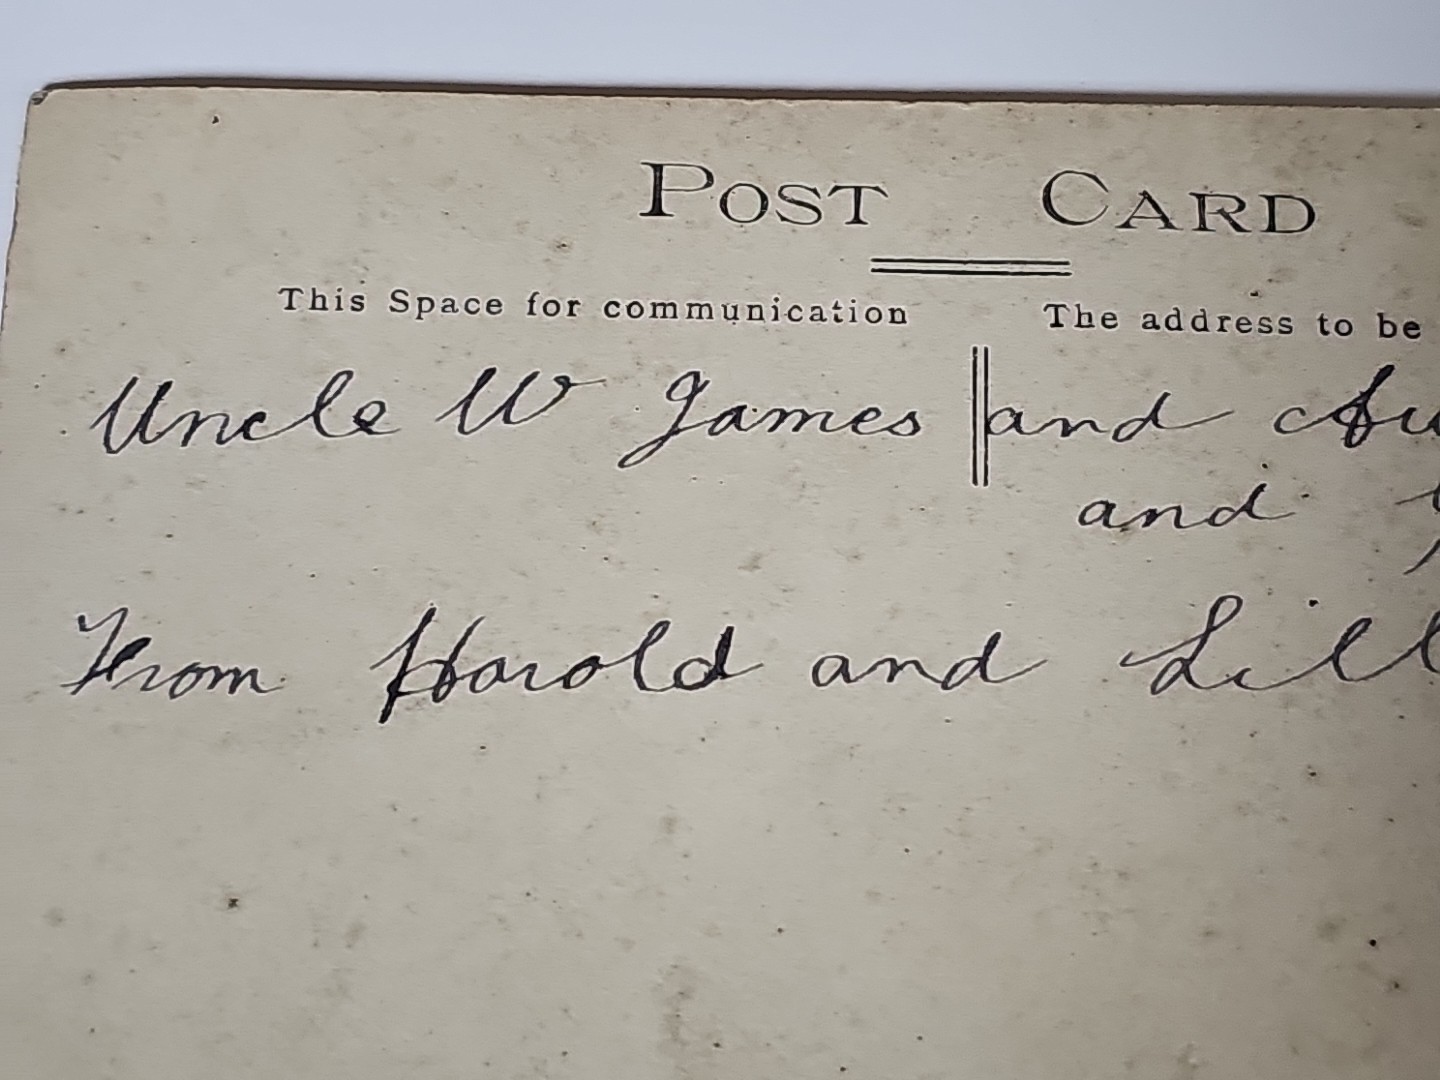 POST CARD
This Space for communication The address to be
Uncle W James and Au
and
From Harold and Lill